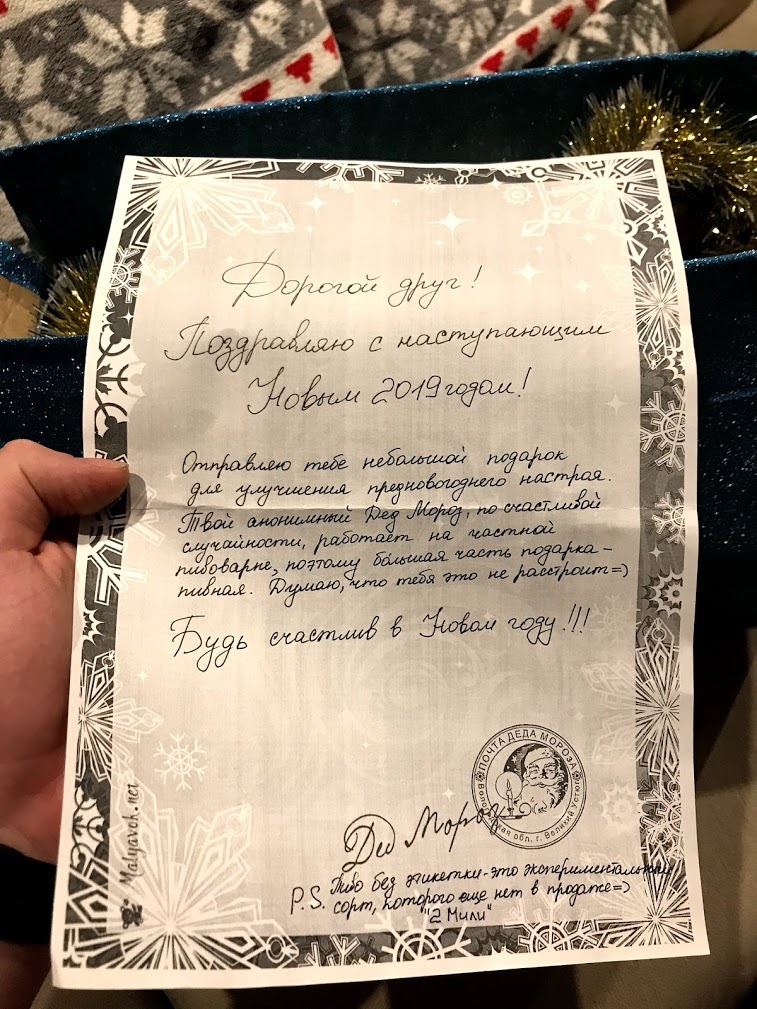 Дорогой друг!
Поздравляю с наступающим
Новым 2019 годом!
Отправляю тебе небольшой подарок
для улучшения предновогоднего настрая.
Твой анонимный Дед Мороз, по счастливой
случайности, работает на частной
пивоварне, поэтому бо́льшая часть подарка -
пивная. Думаю, что тебя это не расстроит=)
Будь счастлив в Новом году!!!
ПОЧТА ДЕДА МОРОЗА
Волого кая обл. г. Великий Устюг
Дед Мороз
P.S. Пиво без этикетки - это экспериментальный
сорт, которого еще нет в продаже=)
"2 Мили"
Malyavok.net